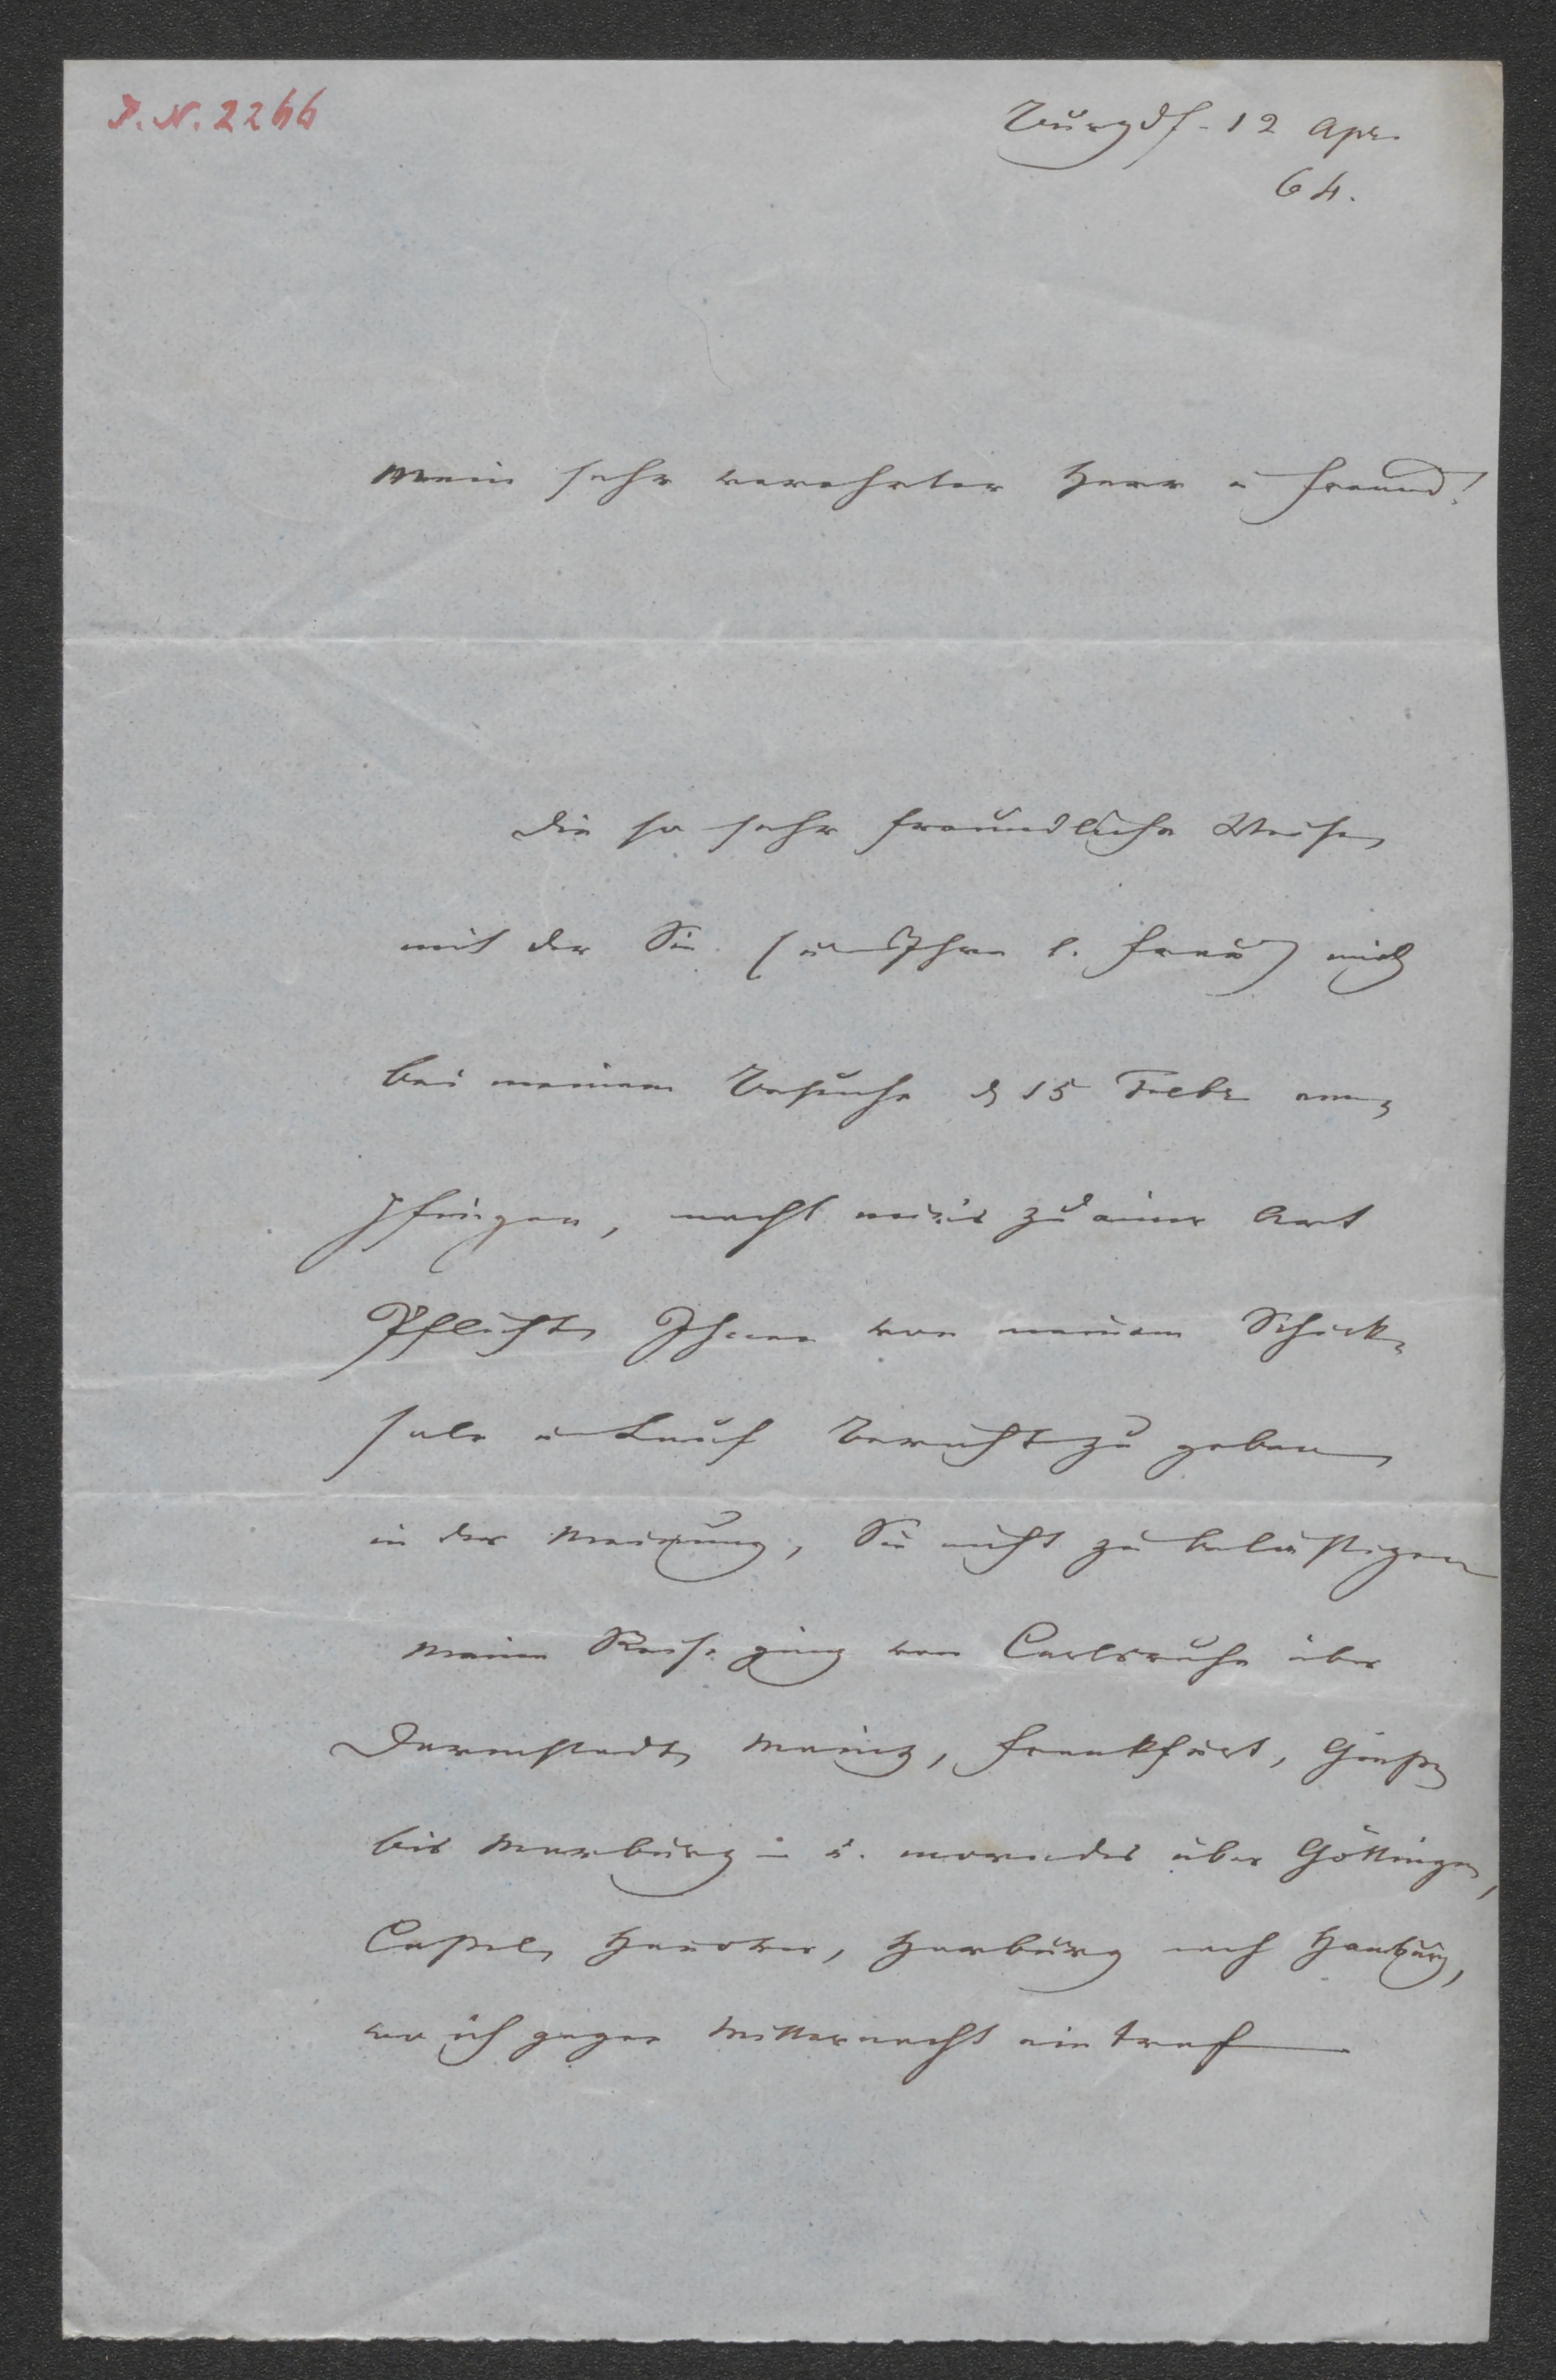 J. N. 2266
Burgdf. 12 Apr.
64.
Mein sehr verehrter Herr u Freund!
Die so sehr freundliche Weise,
mit der Sie (u Ihre l. Frau) mich
bei meinem Besuche d 15 Febr em-
pfingen, macht mir's zu einer Art
Pflicht, Ihnen von meinem Schick-
sale u Lauf Bericht zu geben,
in der Meinung, Sie nicht zu belästigen
Meine Reise ging von Carlsruhe über
Darmstadt, Mainz, Frankfurt, Gießen
bis Marburg u. über Göttingen,
Cassel, Hanover, Harburg nach Hamburg,
wo ich gegen Mitternacht eintraf